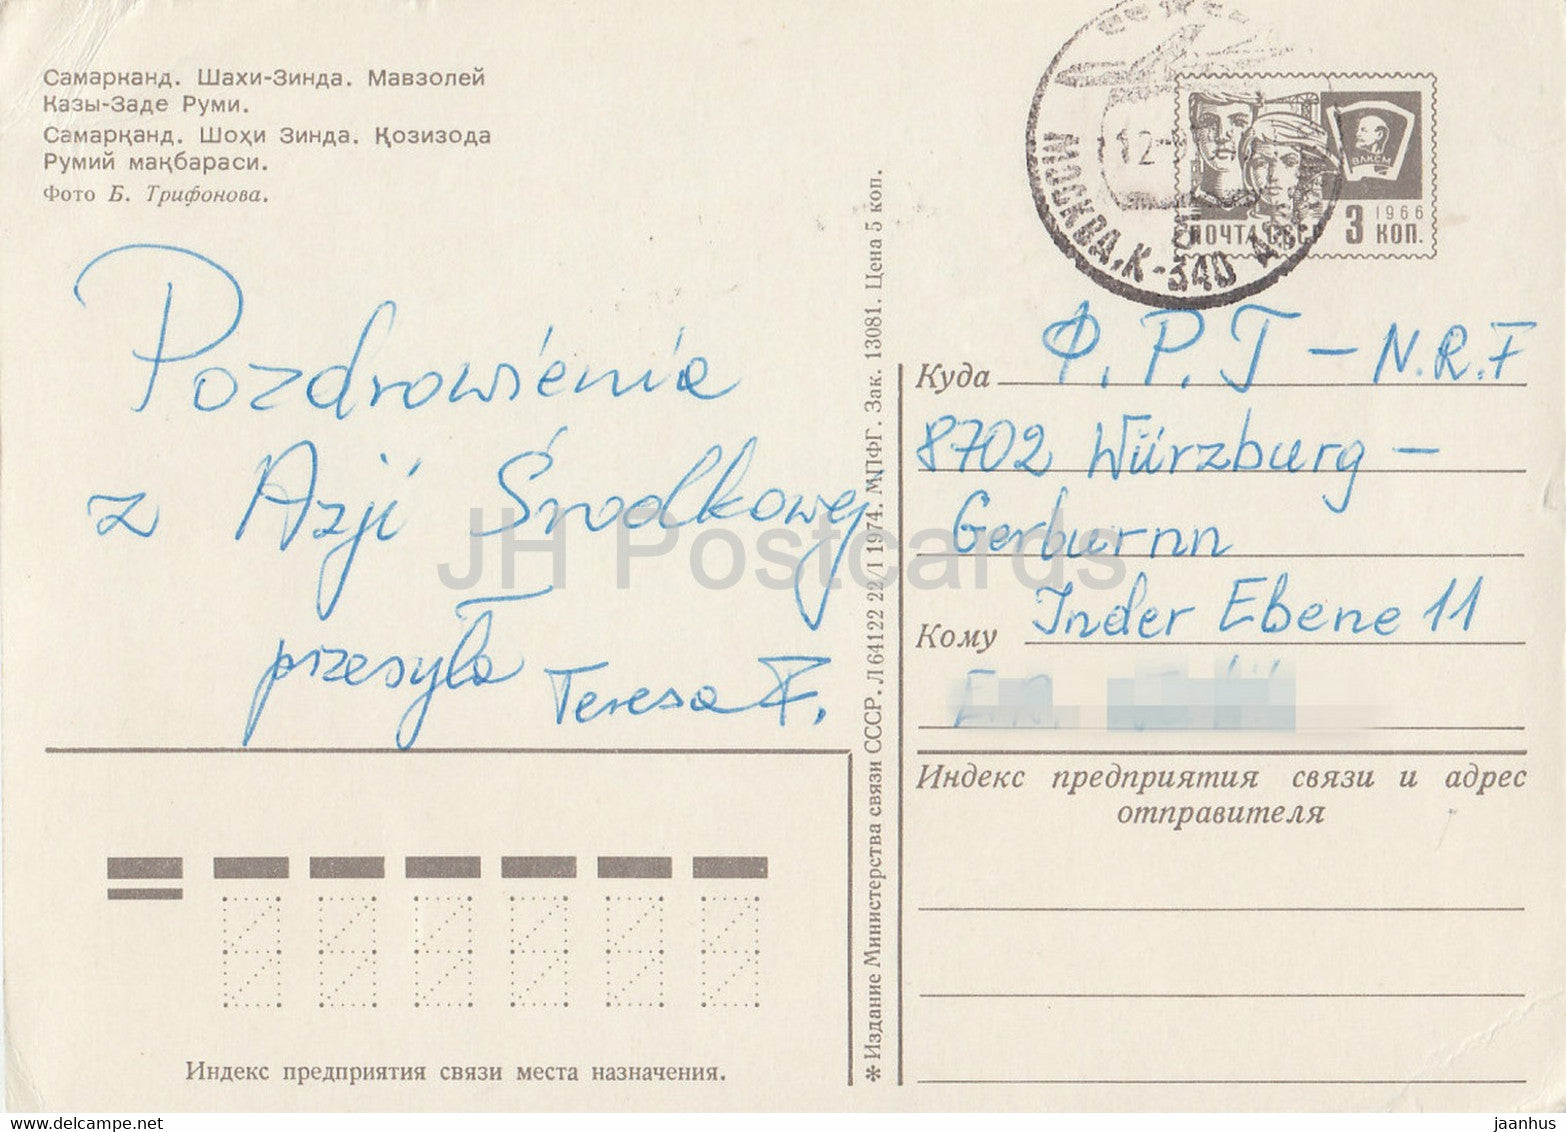 Самарканд. Шахи-Зинда. Мавзолей
Казы-Заде Руми.
Самарқанд. Шоҳи Зинда. Қозизода
Румий мақбараси.
Фото Б. Трифонова.
Pozdrowienia
z Azji Środkowej
przesyła Teresa F.
Индекс предприятия связи места назначения.
✻ Издание Министерства связи СССР. Л 64122 22/I 1974. МПФГ. Зак. 13081. Цена 5 коп.
МОСКВА, К-340
12
ВЛКСМ
1966
ПОЧТА СССР 3 КОП.
Куда Ф.Р.Г – N.R.F
8702 Würzburg –
Gerburnn
Кому Inder Ebene 11
Индекс предприятия связи и адрес
отправителя
JH Postcards
www.delcampe.net
jaanhus